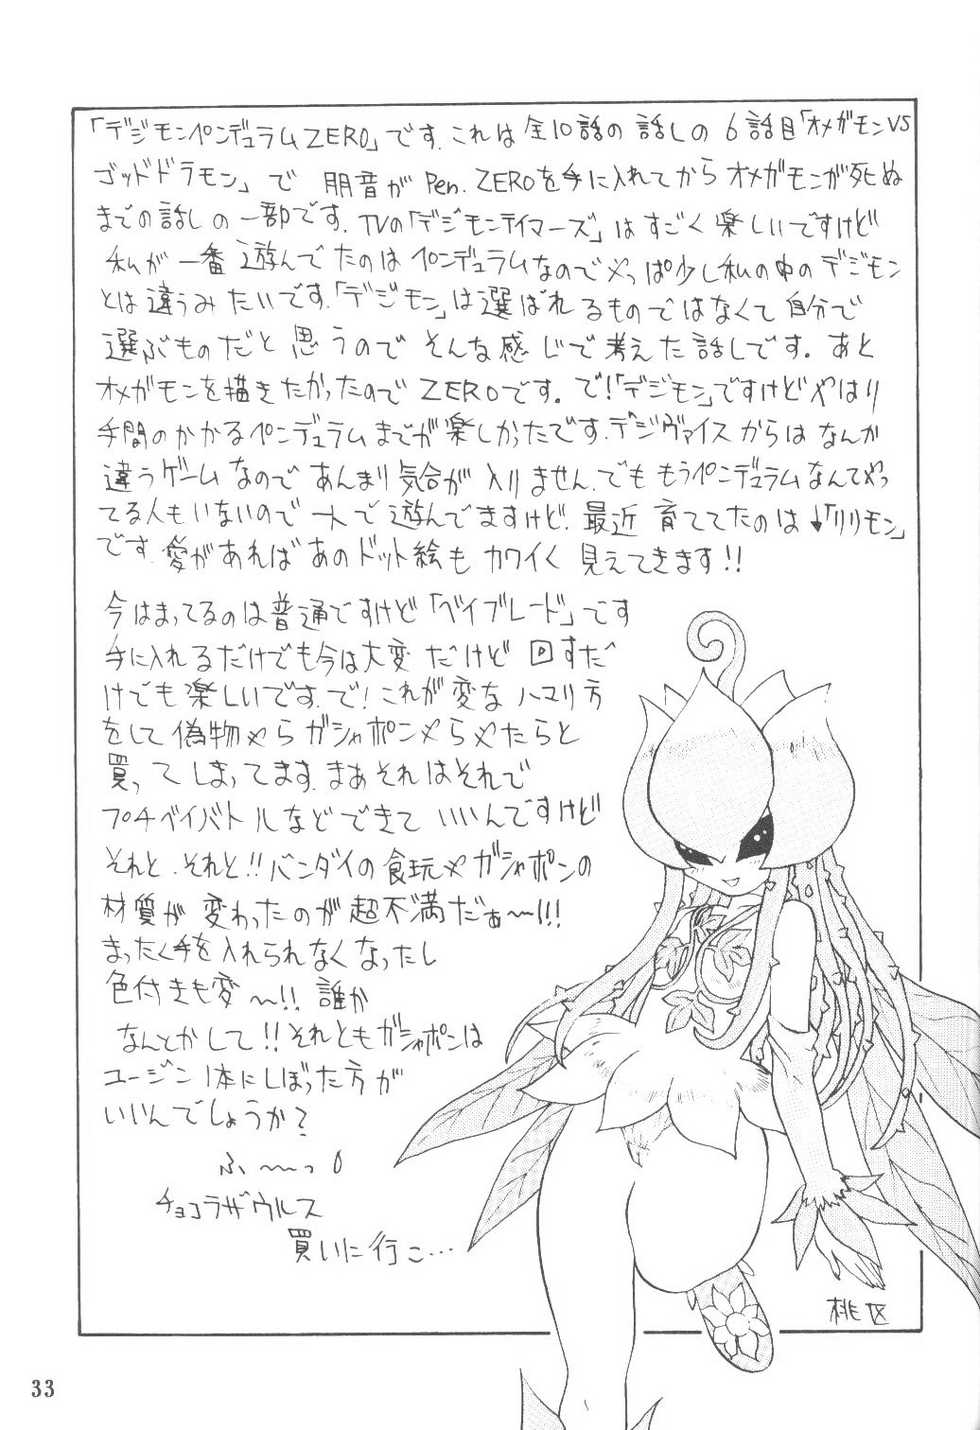 「デジモンペンデュラムZERO」です。これは全10話の話しの6話目「オメガモンVS
ゴッドドラモン」で朋音がPen.ZEROを手に入れてからオメガモンが死ぬ
までの話しの一部です。TVの「デジモンテイマーズ」はすごく楽しいですけど
私が一番遊んでたのはペンデュラムなのでやっぱ少し私の中のデジモン
とは違うみたいです。「デジモン」は選ばれるものではなくて自分で
選ぶものだと思うのでそんな感じで考えた話しです。あと
オメガモンを描きたかったのでZEROです。で!「デジモン」ですけどやはり
手間のかかるペンデュラムまでが楽しかったです。デジヴァイスからはなんか
違うゲームなのであんまり気合が入りません。でももうペンデュラムなんてやっ
てる人もいないので一人で遊んでますけど。最近育ててたのは↓「リリモン」
です。愛があればあのドット絵もカワイく見えてきます!!
今はまってるのは普通ですけど「ベイブレード」です
手に入れるだけでも今は大変だけど回すだ
けでも楽しいです。で!これが変なハマリ方
をして偽物やらガシャポンやらやたらと
買ってしまってます。まあそれはそれで
プチベイバトルなどできていいんですけど
それと、それと!!バンダイの食玩やガシャポンの
材質が変わったのが超不満だぁ〜!!!
まったく手を入れられなくなったし
色付きも変〜!!誰か
なんとかして!!それともガシャポンは
ユージン1本にしぼった方が
いいんでしょうか?
ふ〜っ
チョコラザウルス
買いに行こ…
桃区
33